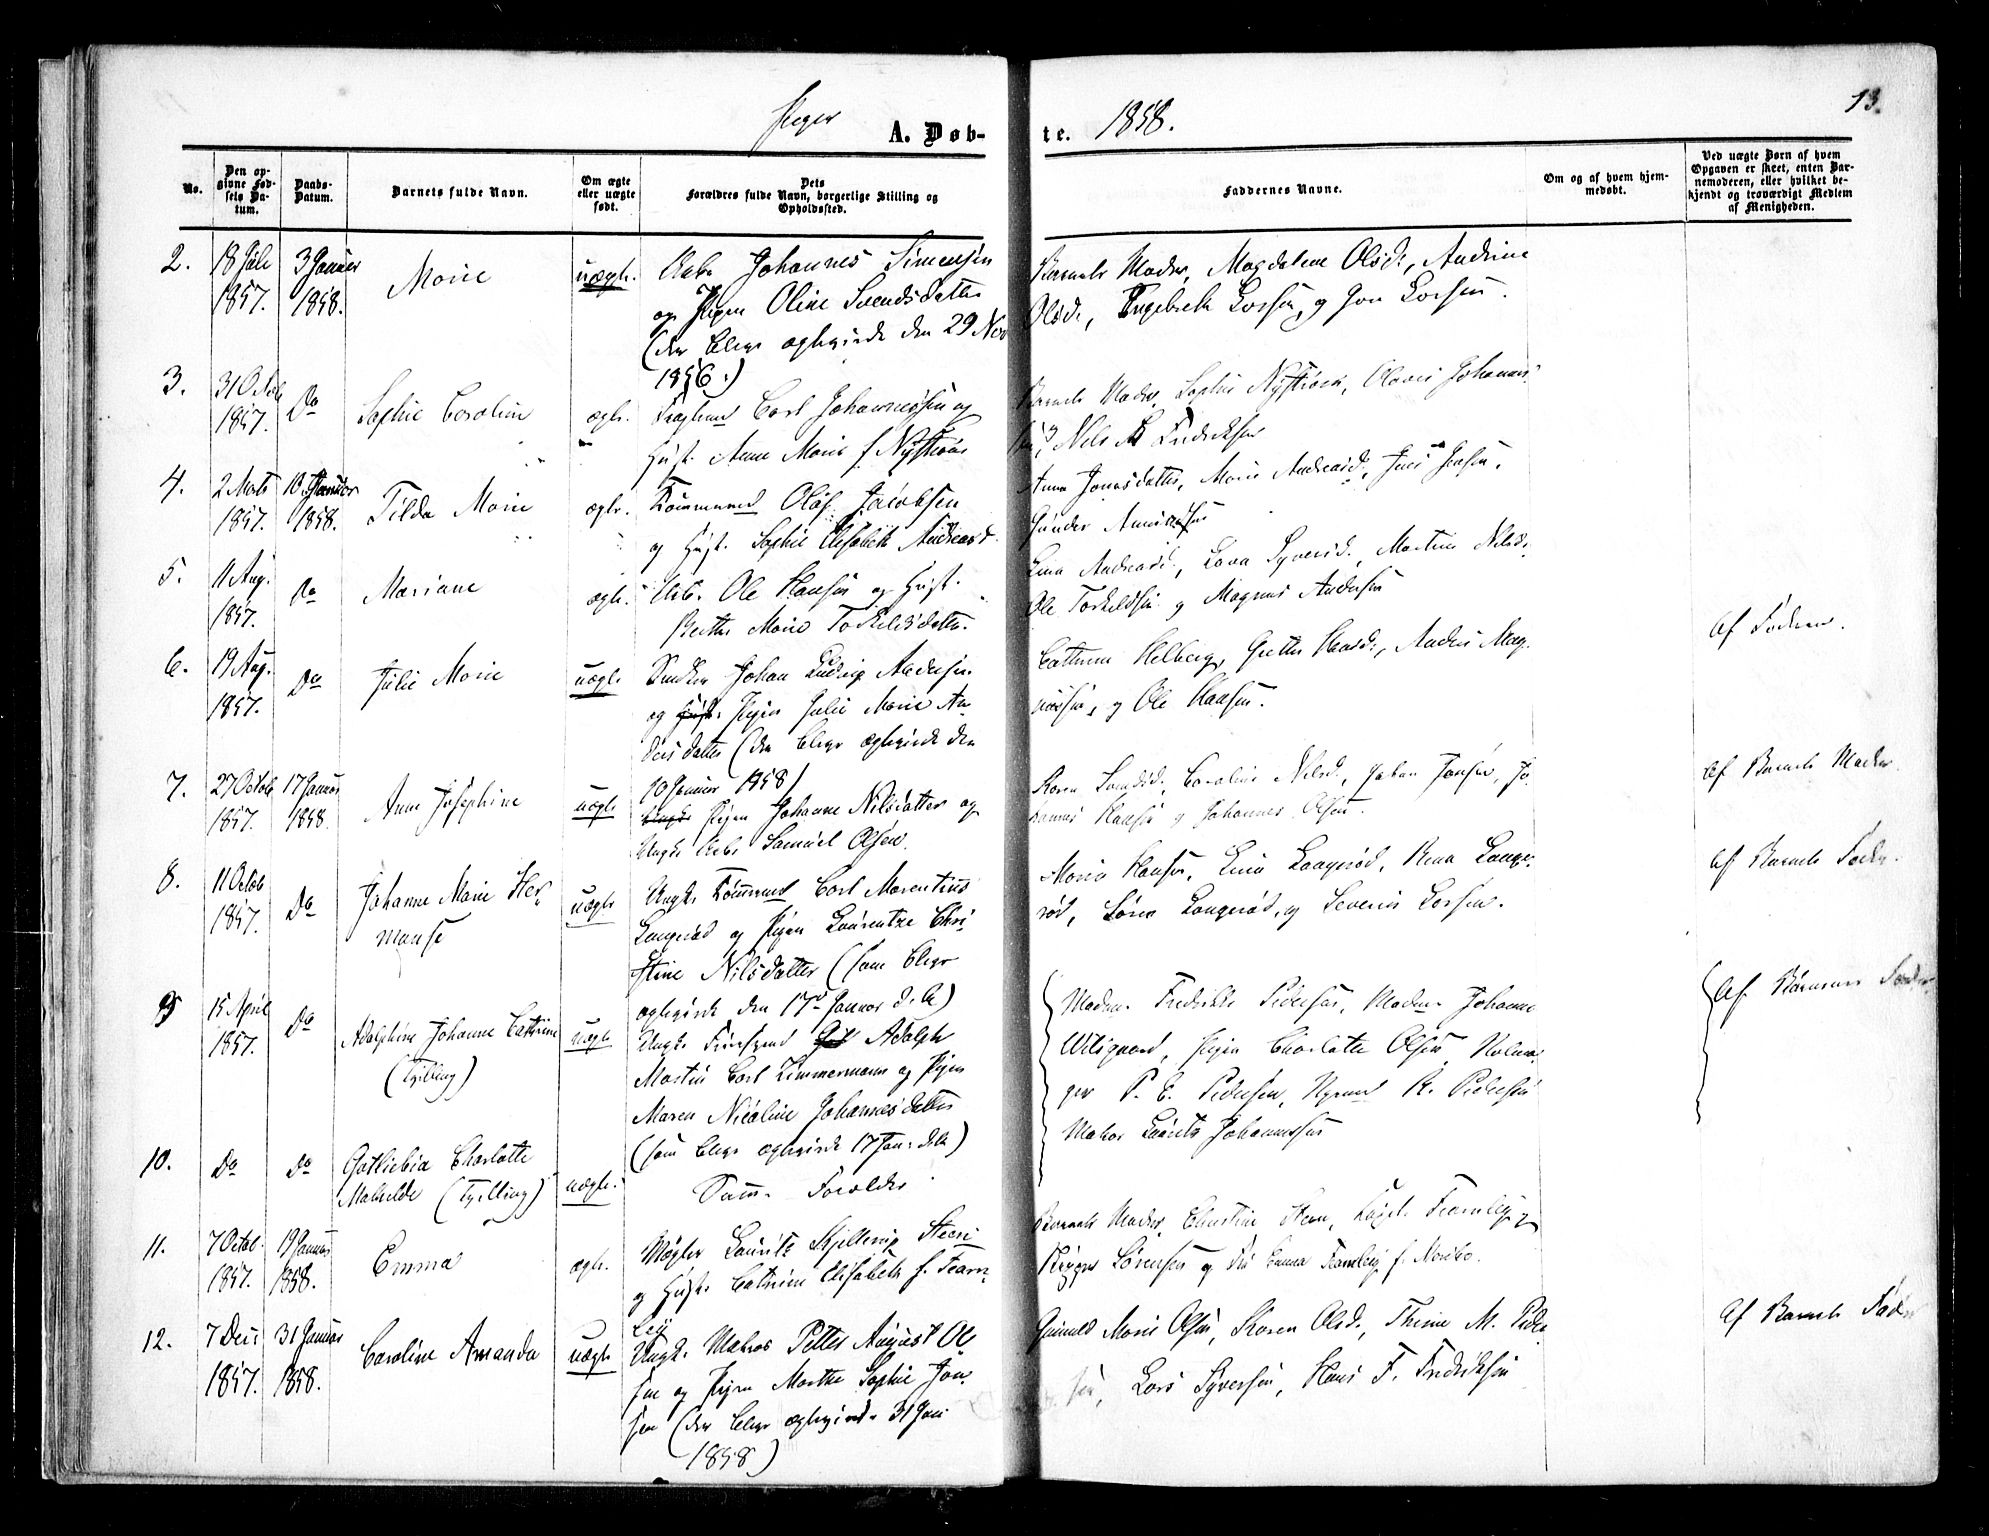 Piger A. Døb-te. 1858. 13.
No.
Den op-
givne Fød-
sels Da-
tum.
Daabs-
Datum.
Barnets fulde Navn.
Om ægte
eller uægte
født.
Dets
Forældres fulde Navn, borgerlige Stilling og
Opholdssted.
Faddernes Navne.
Om og af hvem hjem-
medøbt.
Ved uægte Børn af hvem
Opgaven er skeet, enten Bar-
nemoderen, eller hvilket be-
kjendt og troværdigt Medlem
af Menigheden.
2. 18 Juli 3 Januar Marie uægte. Arb. Johannes Simensen
1857. 1858. og Pigen Oline Svendsdatter
(der bleve ægteviede den 29 Nov
1856.)
Barnets Moder, Magdalene Olsd., Andrine
Olsd., Engebreth Larsen, og Jon Larsen.
3. 31 Octob Do Sophie Caroline ægte. Carl Johannessen og
1857. Hust. Anne Marie f. Nystrøm
Barnets Moder, Sophie Nystrøm, Johannes
sen, Nils Fredriksen
4. 2 Marts 10 Januar Tilda Marie ægte. Tømmermd Olof Jacobsen
1857. 1858. og Hust. Sophie Elisabeth Andreasd.
Anne Jonasdatter, Marie Andreasd., Jens Jensen,
Gunder
5. 11 Aug. Do Mariane ægte. Arb. Ole Hansen og Hust.
1857. Berthe Marie Torkildsdatter.
Lina Andreasd., Lova Syversd., Martin Nilsen
Ole Torkildsen og Magnus Andersen
6. 19 Aug. Do Julie Marie uægte Snedker Johan Ludvig Andersen
1857. og Hust. Pigen Julie Marie An-
dersdatter (der bleve ægteviede den
10 Januar 1858)
Cathrine Helberg, Grethe Hansd., Anders Mag-
nussen, og Ole Hansen.
Af Faderen.
7. 27 Octob 17 Januar Anne Josephine uægte Pigen Johanne Nilsdatter og
1857. 1858. Ungk. Arb. Samuel Olsen.
Karen Larsd., Caroline Nilsd., Johan Jansen, Jo-
hannes Hansen og Johannes Olsen.
Af Barnets Moder.
8. 11 Octob Do Johanne Marie Her- uægte Ungk. Tømmermd Carl Marentius
1857. manse Langerød og Pigen Laurentze Chri-
stine Nilsdatter (som bleve
ægteviede den 17de Januar d. A)
Maria Hansen, Lina Langerød, Rena Lange-
rød, Søren Langerød, og Severin Larsen.
Af Barnets Fader.
9 15 April Do Adolphine Johanne Cathrine uægte Ungk. Adolph
1857. (Tvilling) Martin Carl Zimmermann og Pigen
Maren Nicoline Johannesdatter
(som bleve ægteviede 17 Jan. d. A)
Madm. Fredrikke Pedersen, Madm. Johanne
Witsgaard, Pigen Charlotte Olsen,
P. E. Pedersen, R. Pedersen
Matros Laurits Johannessen
Af Børnenes Fader
10. Do Do Gotliebia Charlotte
Mathilde (Tvilling) uægte. Samme Forældre.
11. 7 Octob. 19 Januar Emma ægte. Mægler Laurits Skjellerup Steen
1857. 1858. og Hust. Cathrine Elisabeth f. Fearn-
ley
Barnets Moder, Christine Steen, Fearnley,
Sørensen og Fru Emma Fearnley f.
12. 7 Decs 31 Januar Caroline Amanda uægte Ungk. Matros Petter August Ol-
1857. 1858. sen og Pigen Marthe Sophie Jan-
sen (der bleve ægteviede 31 Jan.
1858)
Gunild Marie Olsen, Karen Olsd., Thrine M. Peder-
sen, Lars Syversen, Hans F. Fredriksen
Af Barnets Fader